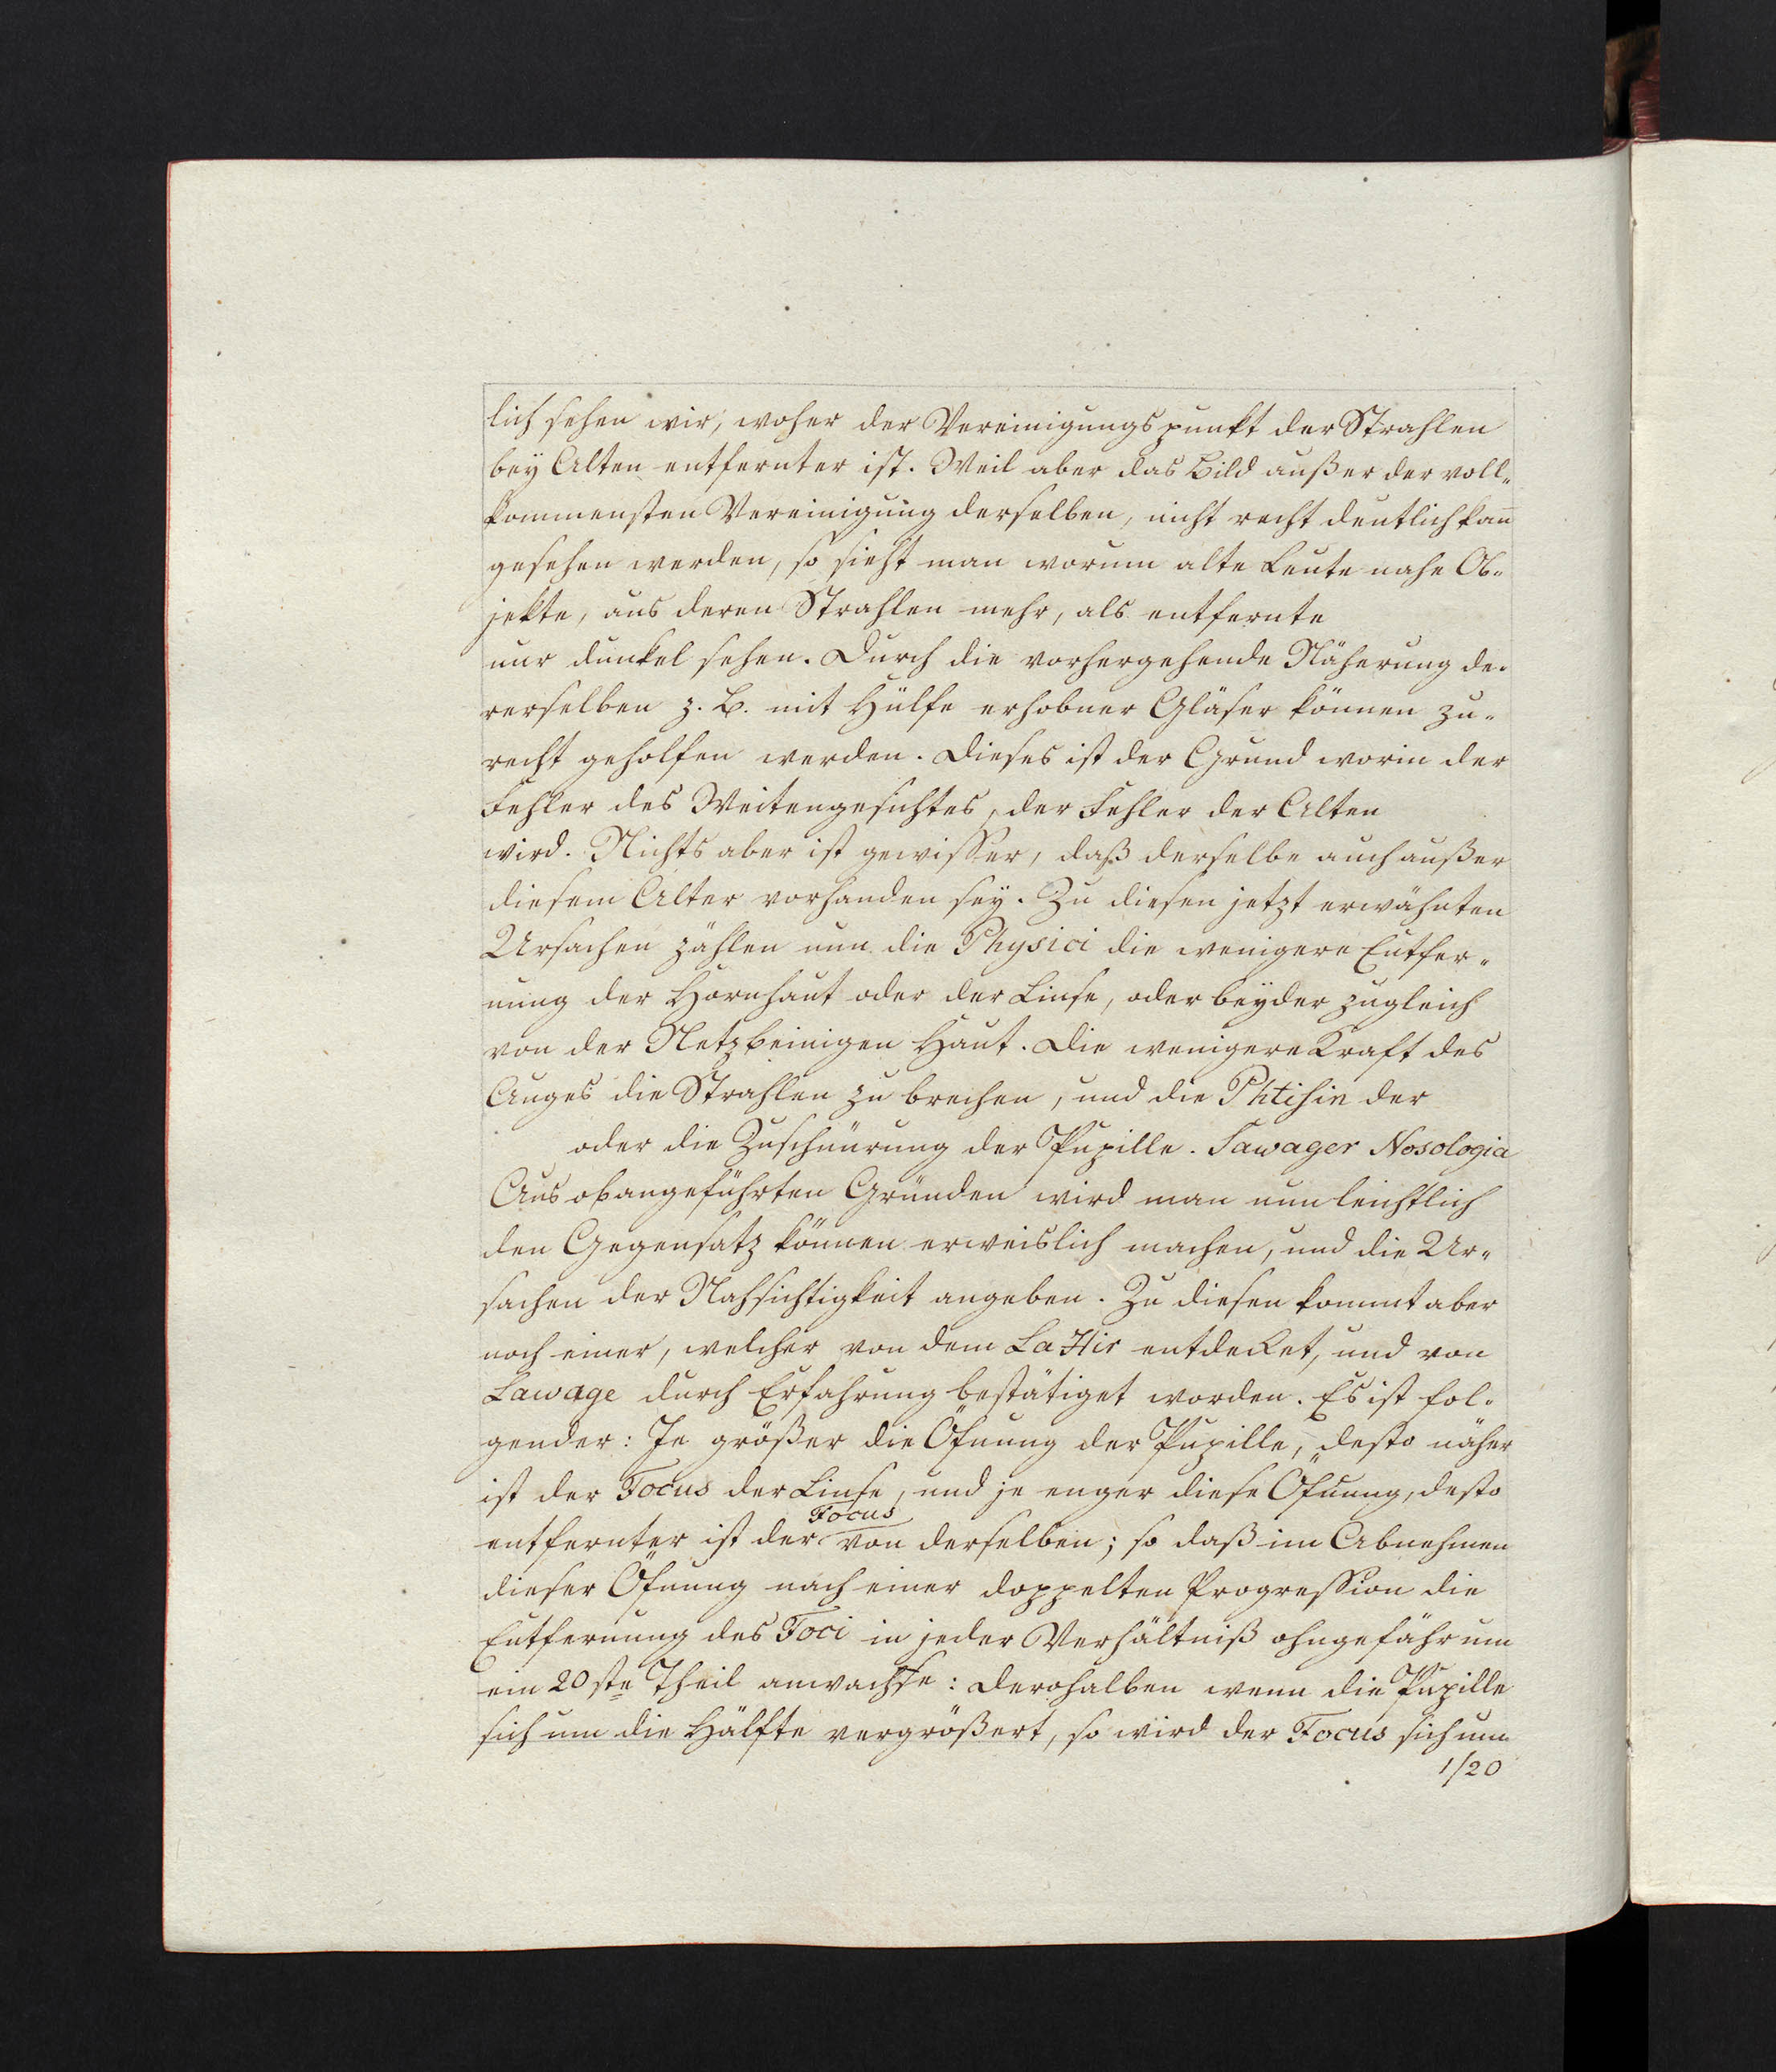 lich sehen wir, woher der Vereinigungspunkt der Strahlen
bey Alten entfernter ist. Weil aber das Bild außer der voll-
kommensten Vereinigung derselben, nicht recht deutlich kan̅
gesehen werden, so sieht man worum alte Leute nahe Ob-
jekte, aus deren Strahlen mehr, als entfernte
nur dunkel sehen. Durch die vorhergehende Näherung de-
rerselben z. B. mit Hülfe erhobner Gläser können zu-
recht geholfen werden. Dieses ist der Grund worin der
Fehler des Weitengesichtes, der Fehler der Alten
wird. Nichts aber ist gewisser, daß derselbe auch außer
diesem Alter vorhanden sey. Zu diesen jetzt erwähnten
Ursachen zählen nun die Physici die wenigere Entfer-
nung der Hornhaut oder der Linse, oder beyder zugleich
von der Netzbeinigen Haut. Die wenigere Kraft des
Auges die Strahlen zu brechen, und die Phtisin der
oder die Zuschnürung der Pupille. Sawager Nosologia
Aus obangeführten Gründen wird man nun leichtlich
den Gegensatz können erweislich machen, und die Ur-
sachen der Nahsichtigkeit angeben. Zu diesen kommt aber
noch einer, welcher von dem La Hir entdecket, und von
Sawage durch Erfahrung bestätiget worden. Es ist fol-
gender: Je größer die Öfnung der Pupille, desto näher
ist der Focus der Linse, und je enger diese Öfnung, desto
Focus
entfernter ist der von derselben; so daß im Abnehmen
dieser Öfnung nach einer doppelten Progression die
Entfernung des Foci in jeder Verhältniß ohngefähr um
ein 20ste Theil anwachse: derohalben wenn die Pupille
sich um die Hälfte vergrößert, so wird der Focus sich um
1/20